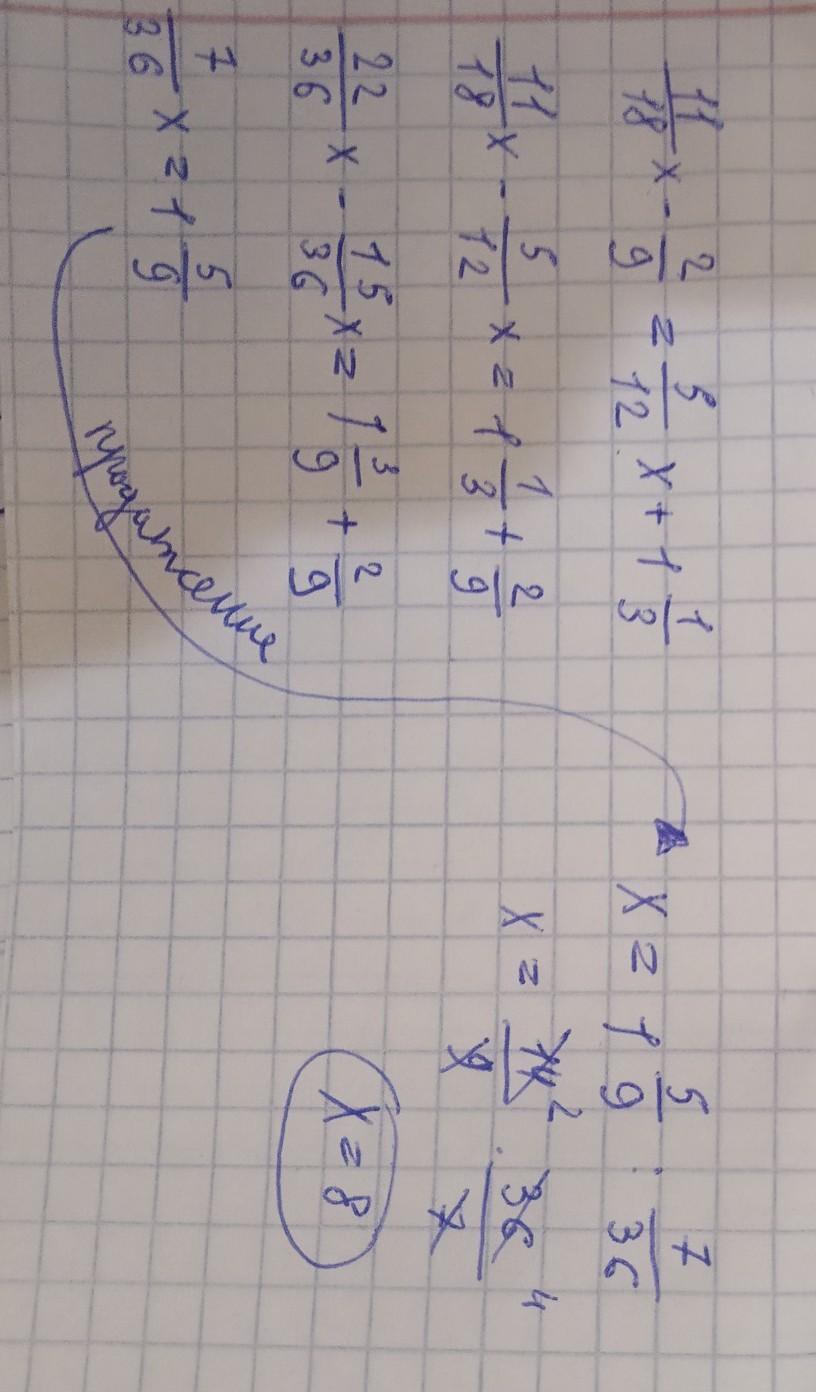 11/18 x - 2/9 = 5/12 x + 1 1/3
11/18 x - 5/12 x = 1 1/3 + 2/9
22/36 x - 15/36 x = 1 3/9 + 2/9
7/36 x = 1 5/9
продолжение
x = 1 5/9 : 7/36
x = 14 2/9 · 36 4/7
x = 8